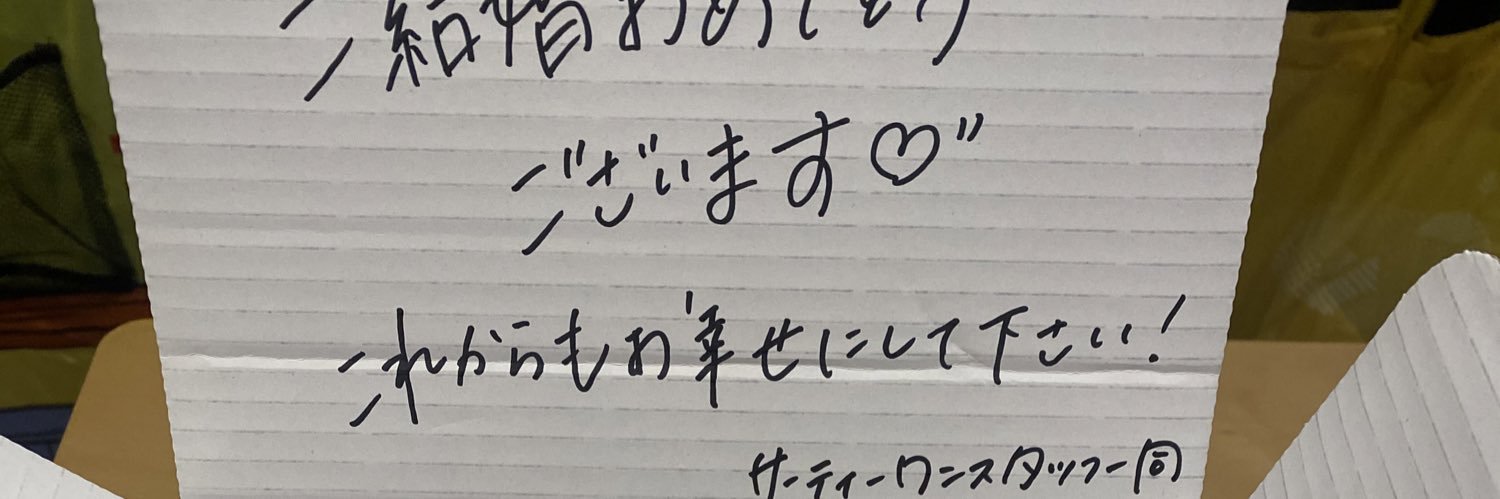 ご結婚おめでとう
ございます♡"
これからもお幸せにして下さい!
サーティーワンスタッフ一同